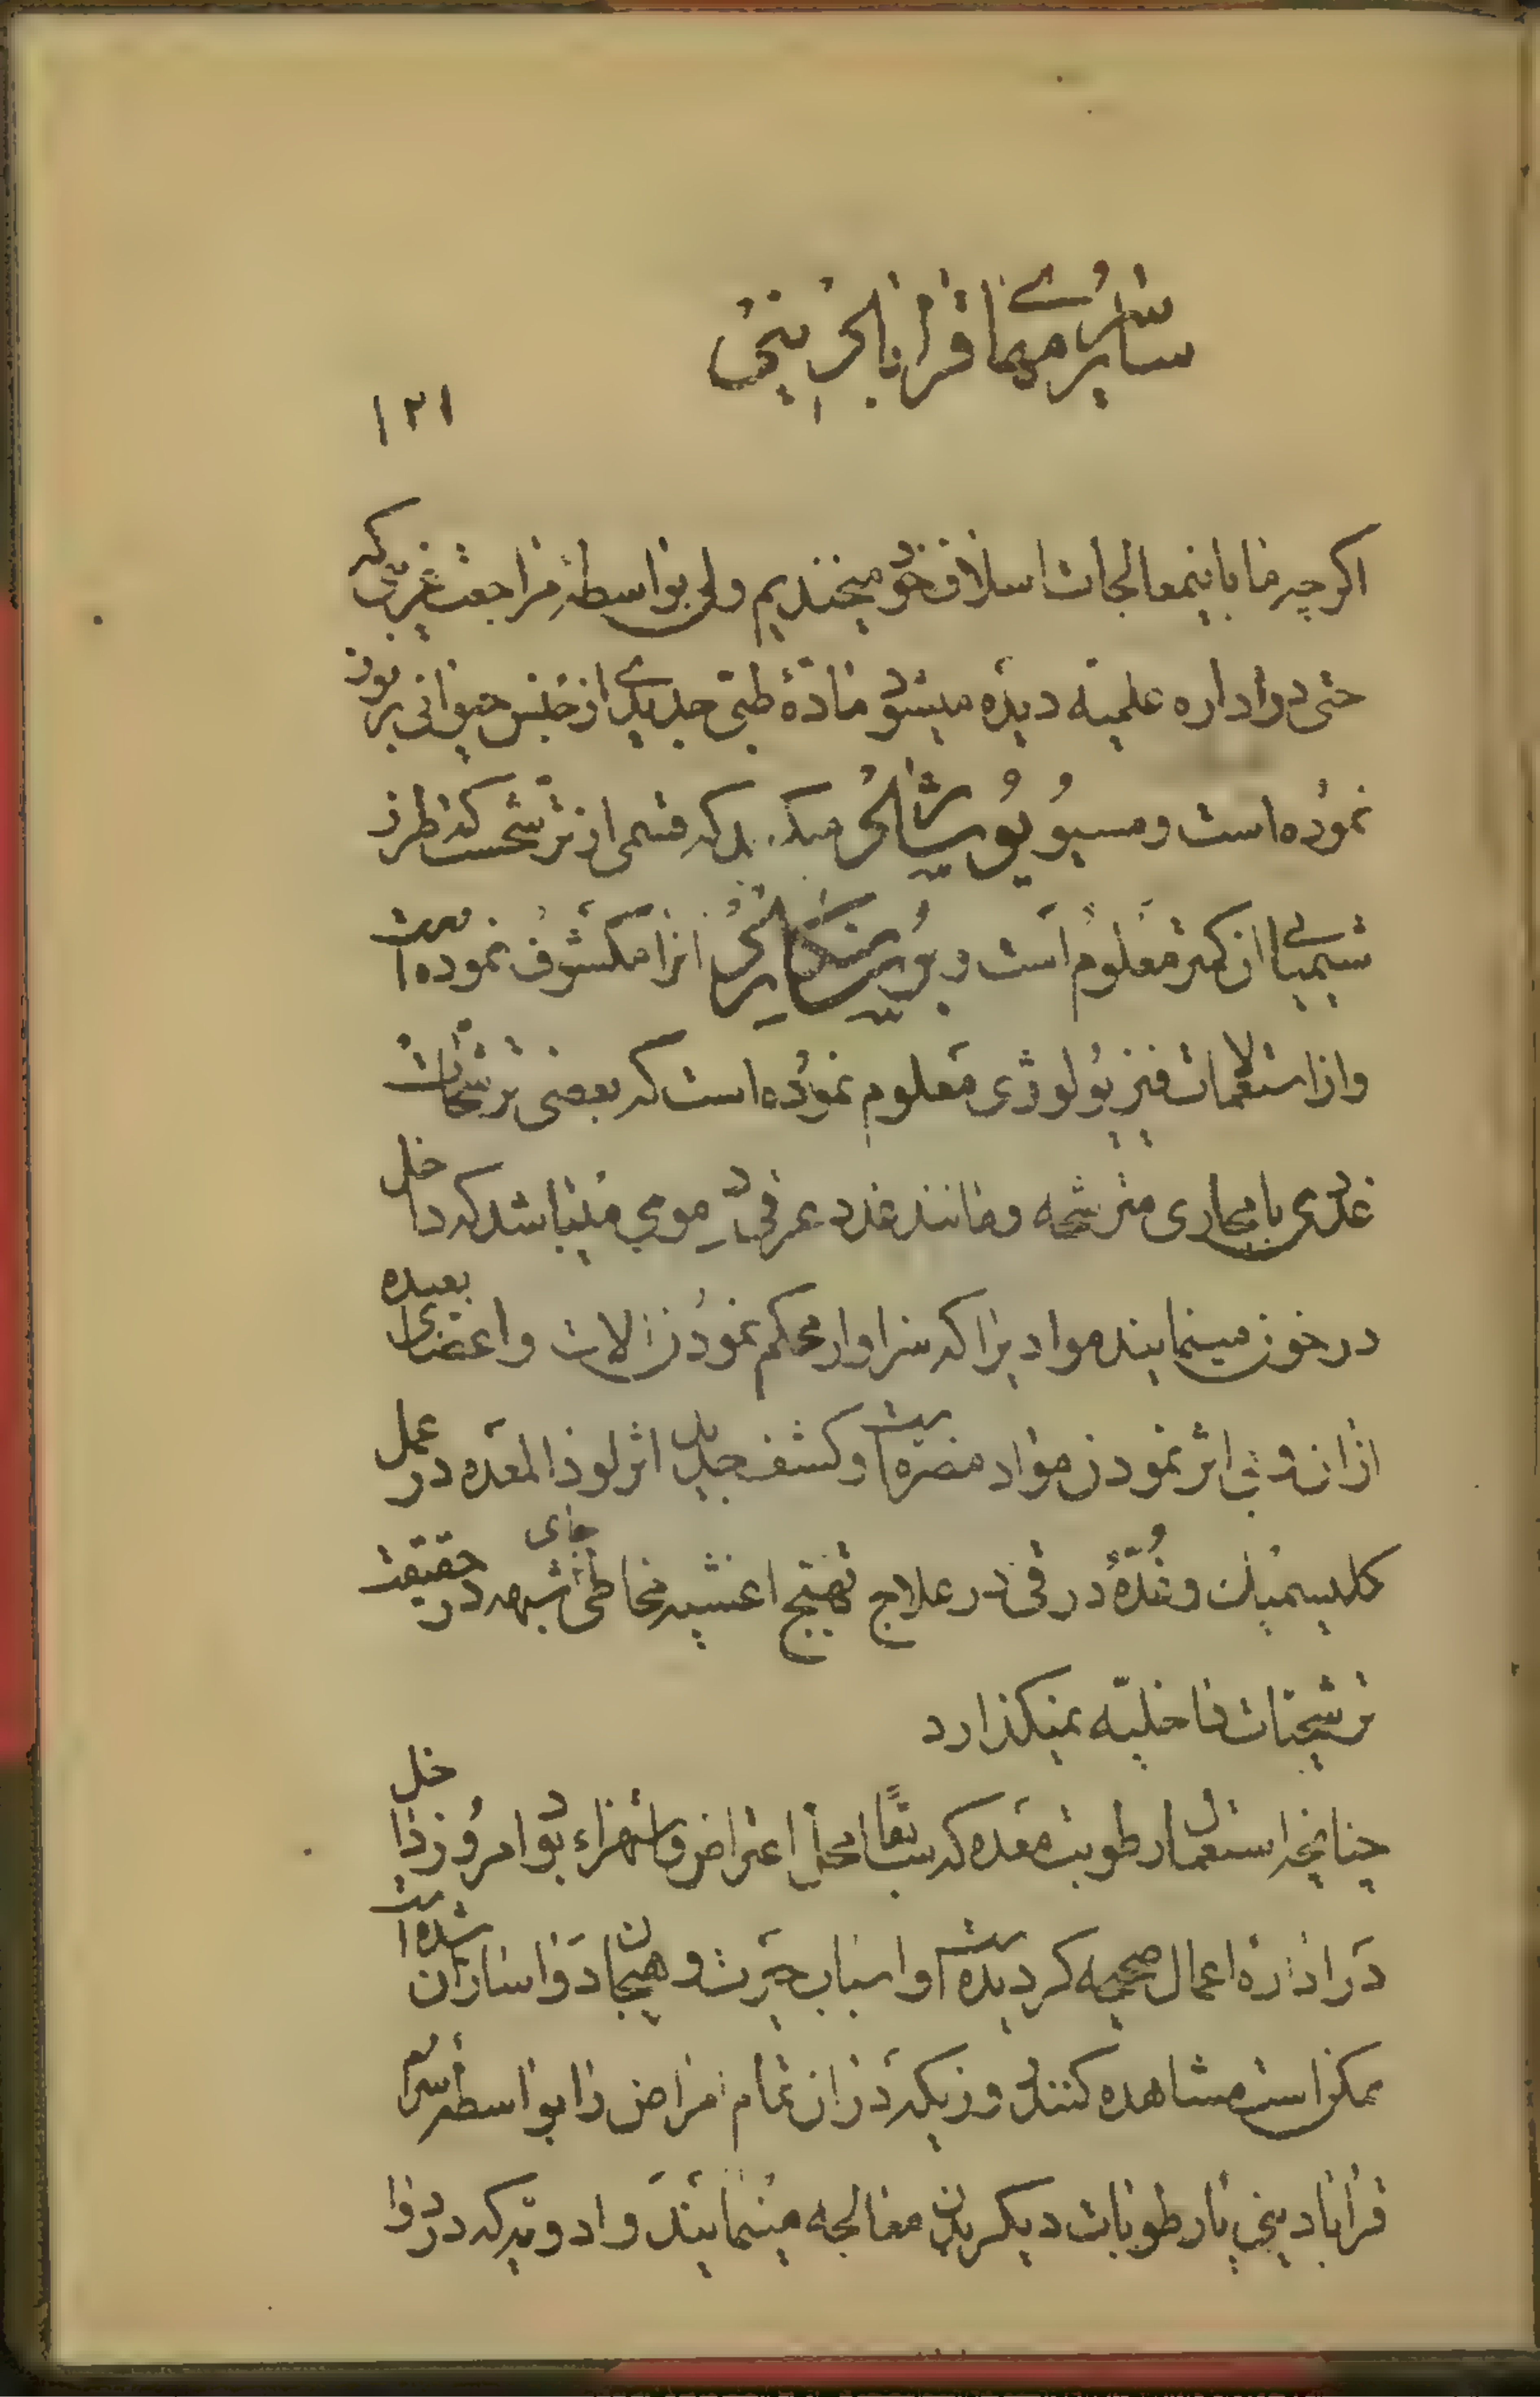 ۱۲۱
اکرچه ما باینمعالجات اسلاف خود میخندیم ولی بواسطهٔ مراجعت غریبی که
حتی در اداره علمیّه دیده میشود مادّهٔ طبّی جدیدی از جنس حیوانی بروز
نموده است و مسیو میکوید که قسمی از ترشحست که طرز
شیمیائی ان کمتر معلوم است و انرا مکشوف نموده است
و از استعمالات فیزیولوژی معلوم نموده است که بعضی ترشحات
غددی با مجاری مترشحه و مانند غدد عرقی و مومی میباشد که داخل
در خون مینمایند موادیرا که سزاوار محکم نمودن الات و اعضای بعیده
از ان و بی اثر نمودن مواد مضره است و کشف جدید اثر لوذ المعده در عمل
و غُدّهٔ درقی در علاج تهییج اغشیه مخاطی جای شبهه در حقیقت
ترشیحات داخلیّه نمیکذارد
چنانچه استعمال رطوبت معده که سابقاً محل اعتراض و استهزاء بود امروز داخل
در ادارهٔ اعمال صحیحه کردیده است و اسباب حیرت و هیجان دواسازان شده است
ممکن است مشاهده کنند روزیکه در ان تمام امراض را بواسطه
قرابادینی یا رطوبات دیکر بدن معالجه مینمایند و ادویه که در دوا